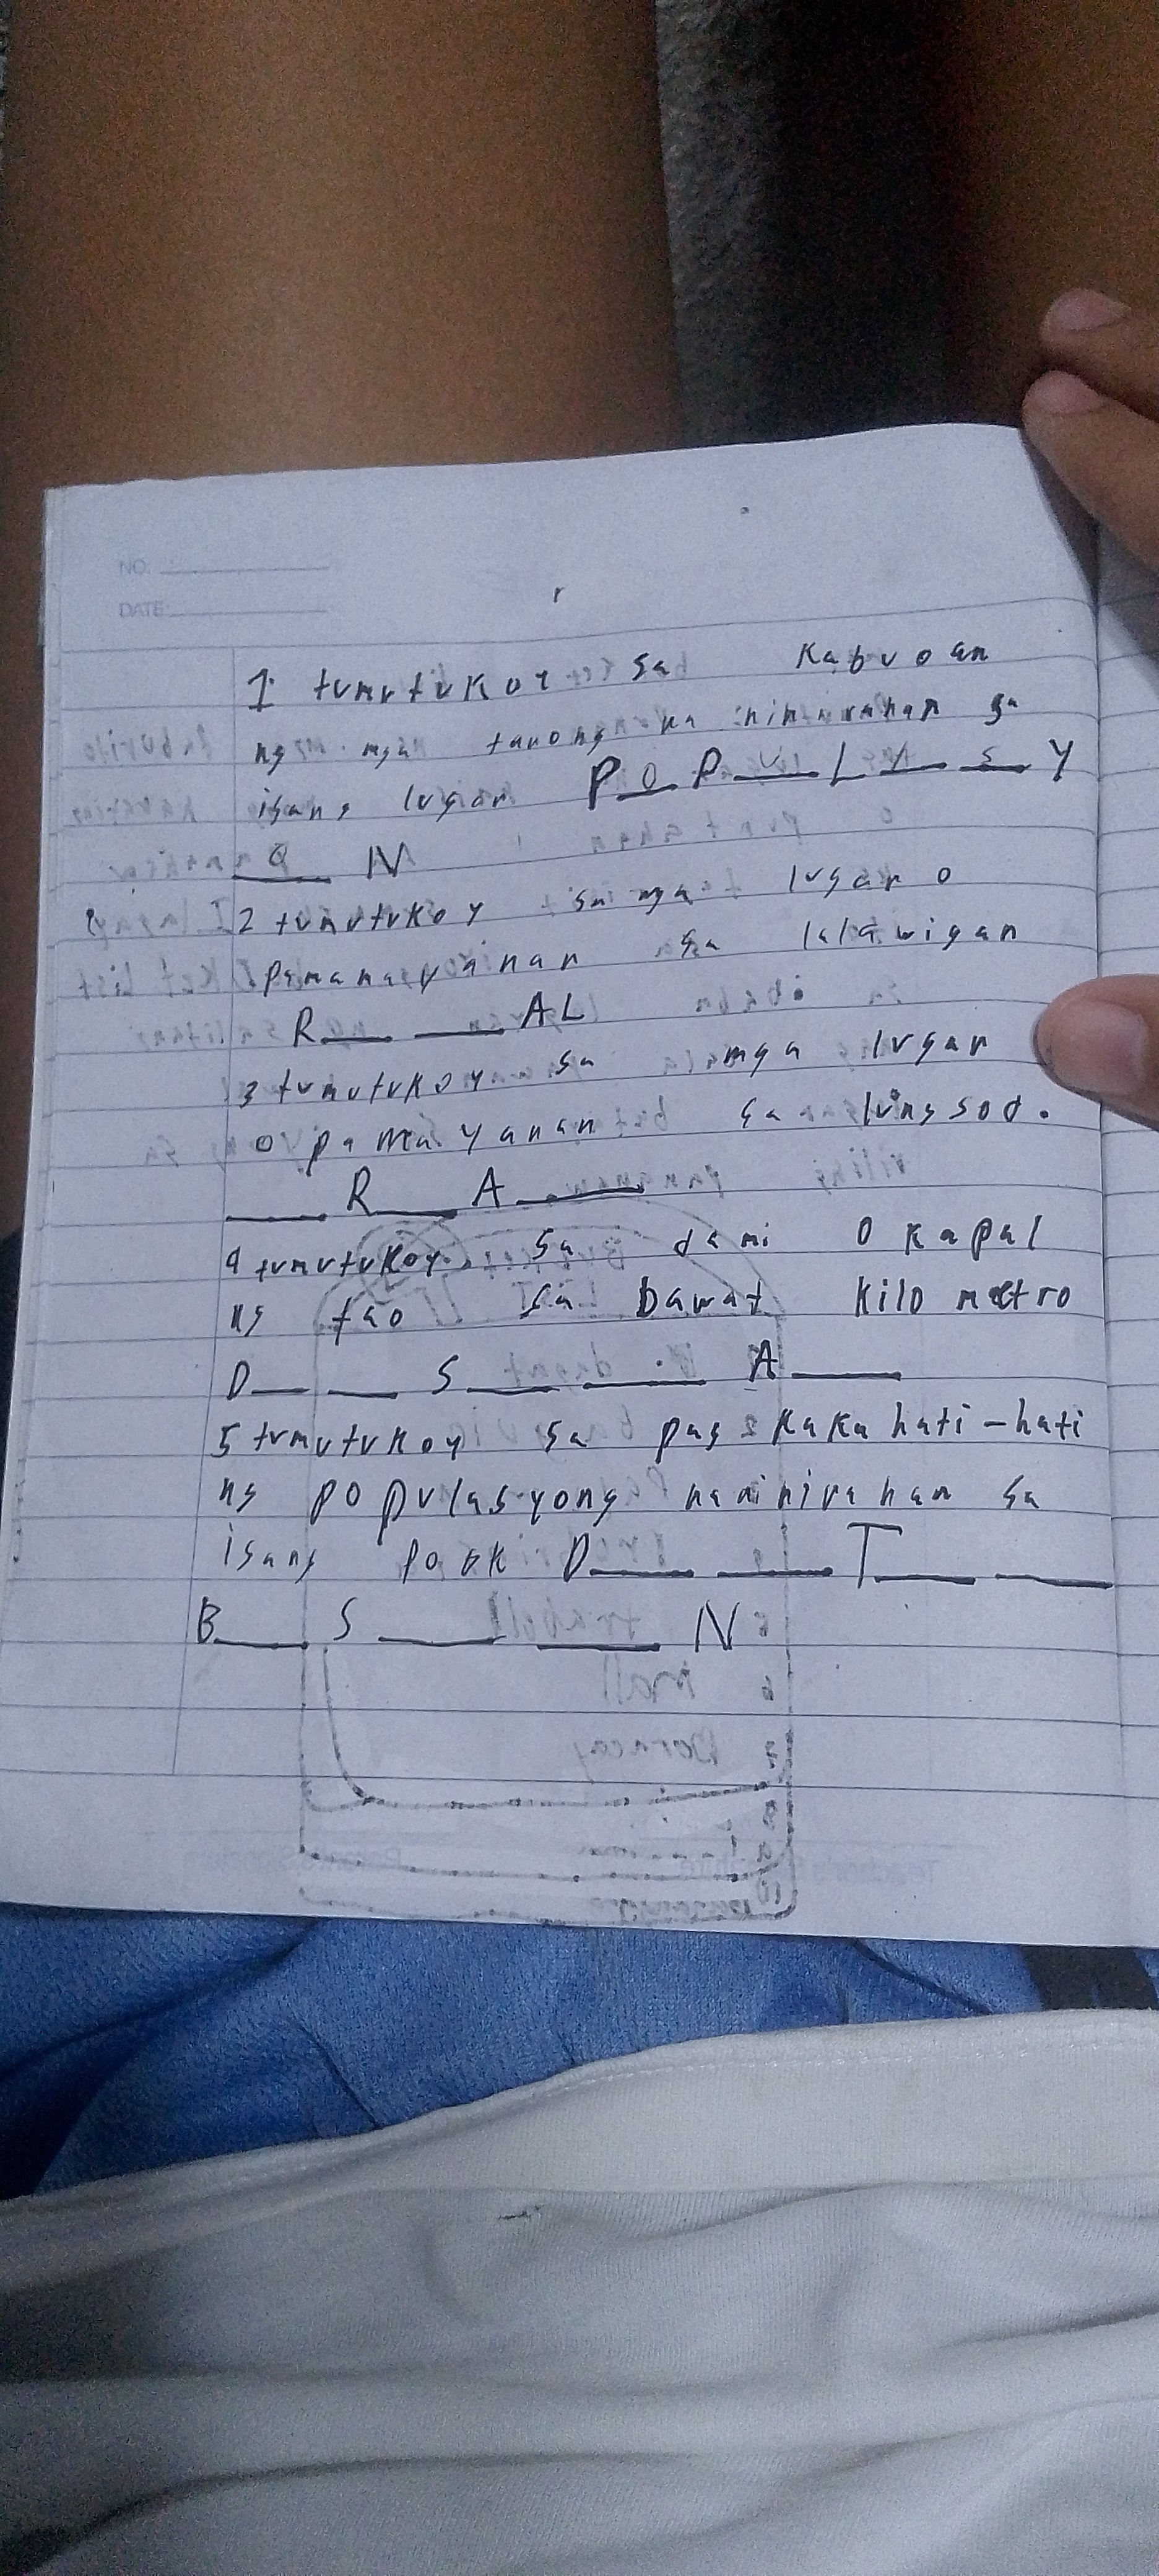 NO:
DATE
1. tumutukoy sa kabuoan
ng mga taong na ninirahan sa
isang lugar P O P U L A S Y
O N
2 tumutukoy sa mga lugar o
pamanayanan sa lalawigan
R__ __ AL
3 tumutukoy sa mga lugar
o pamayanan sa lungsod.
__ R__ A__
4 tumutukoy sa dami o kapal
ng tao sa bawat kilometro
D__ __ S__ __ A__
5 tumutukoy sa pag kakahati-hati
ng populasyong naninirahan sa
isang pook D__ __ T__ __
B__ S __ __ N